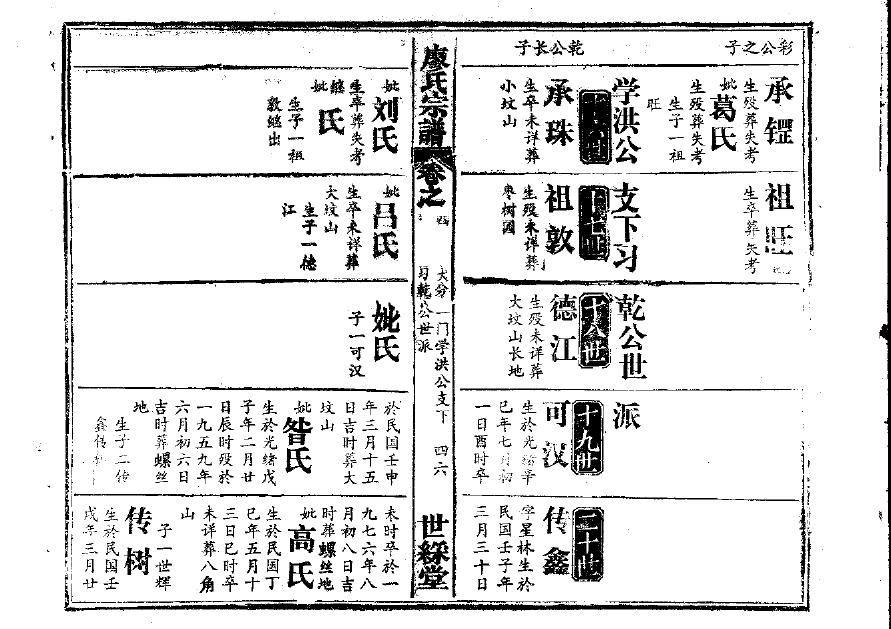 彩公之子
承锃
生殁葬失考
妣葛氏
生殁葬失考
生子一祖
旺
祖旺
生卒葬失考
学洪公支下习乾公世派
乾公长子
十六世
承珠
生卒未详葬
小坟山
妣刘氏
生卒葬失考
继妣氏
生子一祖
敦继出
十七世
祖敦
生殁未详葬
枣树园
妣吕氏
生卒未详葬
大坟山
生子一德
江
十八世
德江
生殁未详葬
大坟山长地
妣氏
子一可汉
十九世
可汉
生於光绪辛
巳年七月初
一日酉时卒
於民国壬申
年三月十五
日吉时葬大
坟山
妣昝氏
生於光绪戊
子年二月廿
日辰时殁於
一九五九年
六月初六日
吉时葬螺丝
地
生子二传
鑫传树
二十世
传鑫
字星林生於
民国壬子年
三月三十日
未时卒於一
九七六年八
月初八日吉
时葬螺丝地
妣高氏
生於民国丁
巳年五月十
三日巳时卒
未详葬八角
山
子一世辉
传树
生於民国壬
戌年三月廿
廖氏宗谱
卷之四
大分一门学洪公支下
习乾公世派
四六
世綵堂